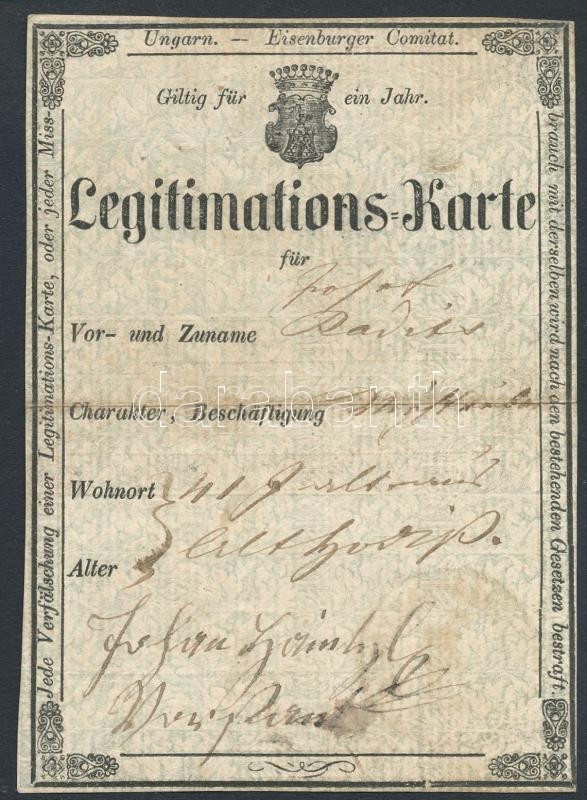 Ungarn. — Eisenburger Comitat.
Giltig für ein Jahr.
Legitimations=Karte
für
Josef
Vor- und Zuname Radits
Charakter, Beschäftigung
Wohnort 41
Alter Althodiß.
Johan
Vorstand
Jede Verfälschung einer Legitimations-Karte, oder jeder Miss-
brauch mit derselben wird nach den bestehenden Gesetzen bestraft.
darabanth